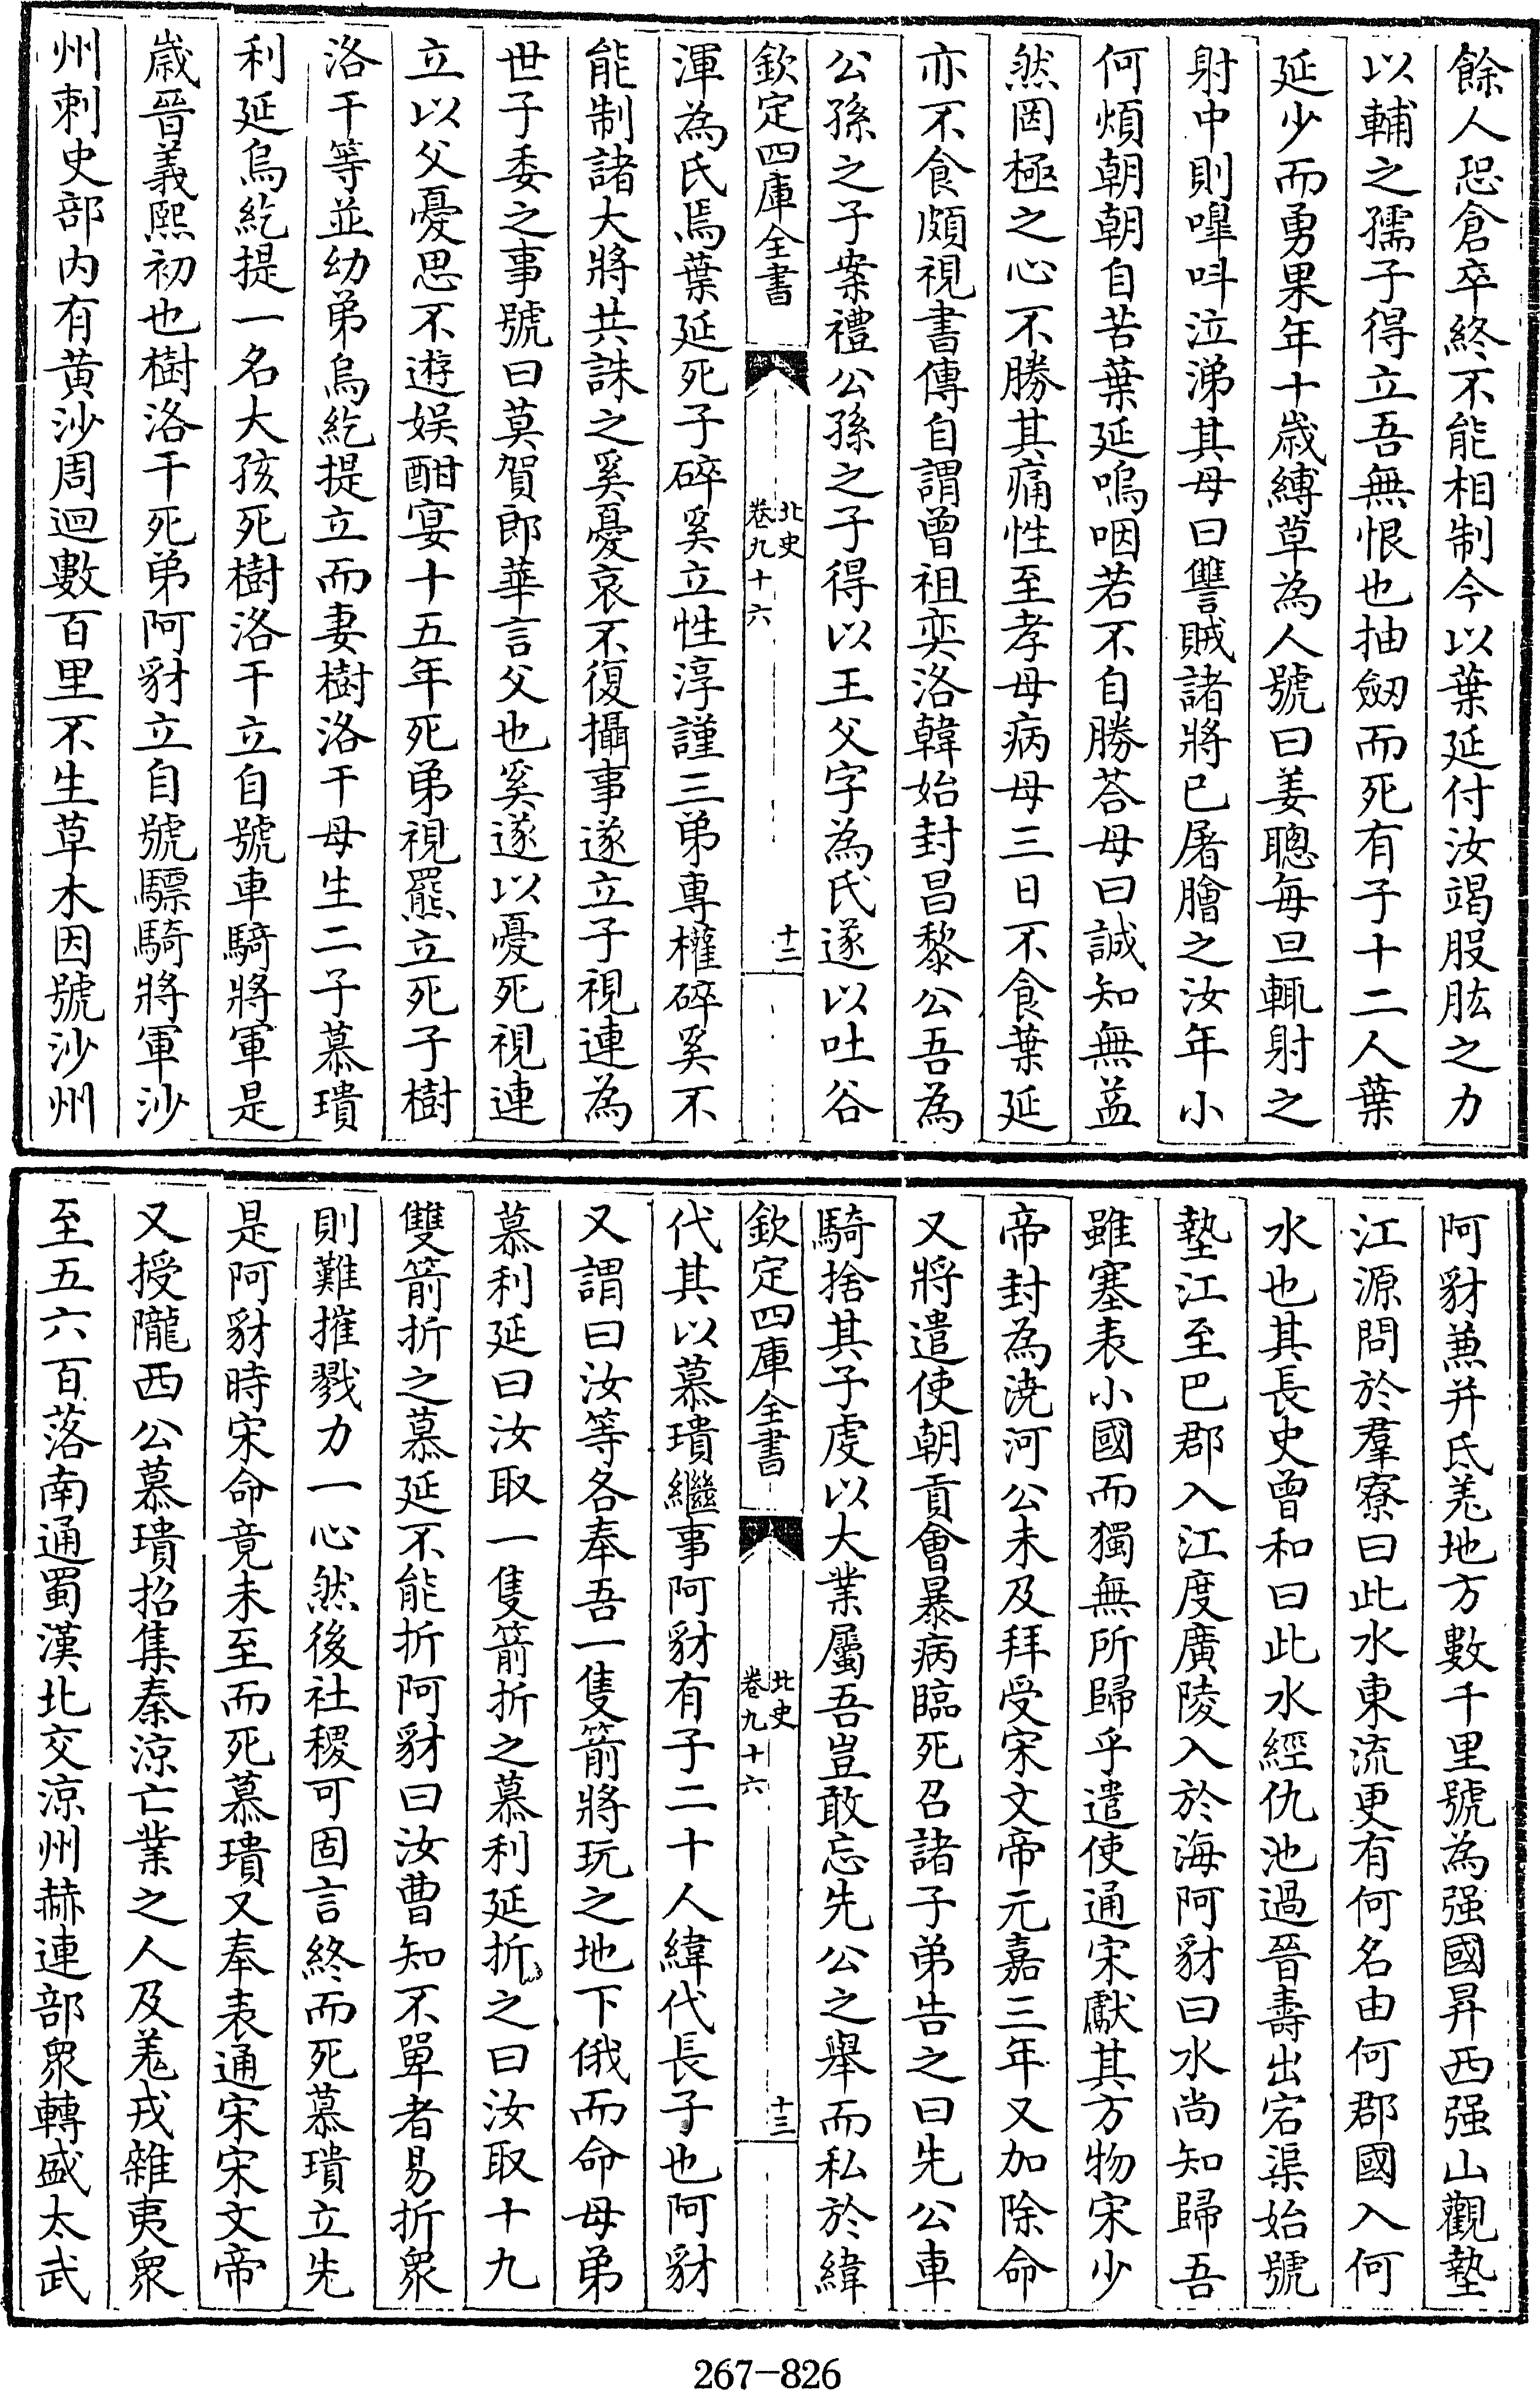 餘人恐倉卒終不能相制今以葉延付汝竭股肱之力
以輔之孺子得立吾無恨也抽劒而死有子十二人葉
延少而勇果年十歲縛草為人號曰姜聰每旦輒射之
射中則嘷呌泣涕其母曰讐賊諸將已屠膾之汝年小
何煩朝朝自苦葉延嗚咽若不自勝荅母曰誠知無益
然罔極之心不勝其痛性至孝母病母三日不食葉延
亦不食頗視書傳自謂曾祖奕洛韓始封昌黎公吾為
公孫之子案禮公孫之子得以王父字為氏遂以吐谷
欽定四庫全書
北史
卷九十六
十二
渾為氏焉葉延死子碎奚立性淳謹三弟專權碎奚不
能制諸大將共誅之奚憂哀不復攝事遂立子視連為
世子委之事號曰莫賀郎華言父也奚遂以憂死視連
立以父憂思不遊娛酣宴十五年死弟視羆立死子樹
洛干等並幼弟烏紇提立而妻樹洛干母生二子慕璝
利延烏紇提一名大孩死樹洛干立自號車騎將軍是
歲晉義熙初也樹洛干死弟阿豺立自號驃騎將軍沙
州刺史部内有黄沙周迴數百里不生草木因號沙州
阿豺兼并氐羌地方數千里號為强國昇西强山觀墊
江源問於羣寮曰此水東流更有何名由何郡國入何
水也其長史曾和曰此水經仇池過晉壽出宕渠始號
墊江至巴郡入江度廣陵入於海阿豺曰水尚知歸吾
雖塞表小國而獨無所歸乎遣使通宋獻其方物宋少
帝封為澆河公未及拜受宋文帝元嘉三年又加除命
又將遣使朝貢會暴病臨死召諸子弟告之曰先公車
騎捨其子虔以大業屬吾豈敢忘先公之舉而私於緯
欽定四庫全書
北史
卷九十六
十三
代其以慕璝繼事阿豺有子二十人緯代長子也阿豺
又謂曰汝等各奉吾一隻箭將玩之地下俄而命母弟
慕利延曰汝取一隻箭折之慕利延折之曰汝取十九
雙箭折之慕延不能折阿豺曰汝曹知不單者易折衆
則難摧戮力一心然後社稷可固言終而死慕璝立先
是阿豺時宋命竟未至而死慕璝又奉表通宋宋文帝
又授隴西公慕璝招集秦涼亡業之人及羌戎雜夷衆
至五六百落南通蜀漢北交涼州赫連部衆轉盛太武
267-826